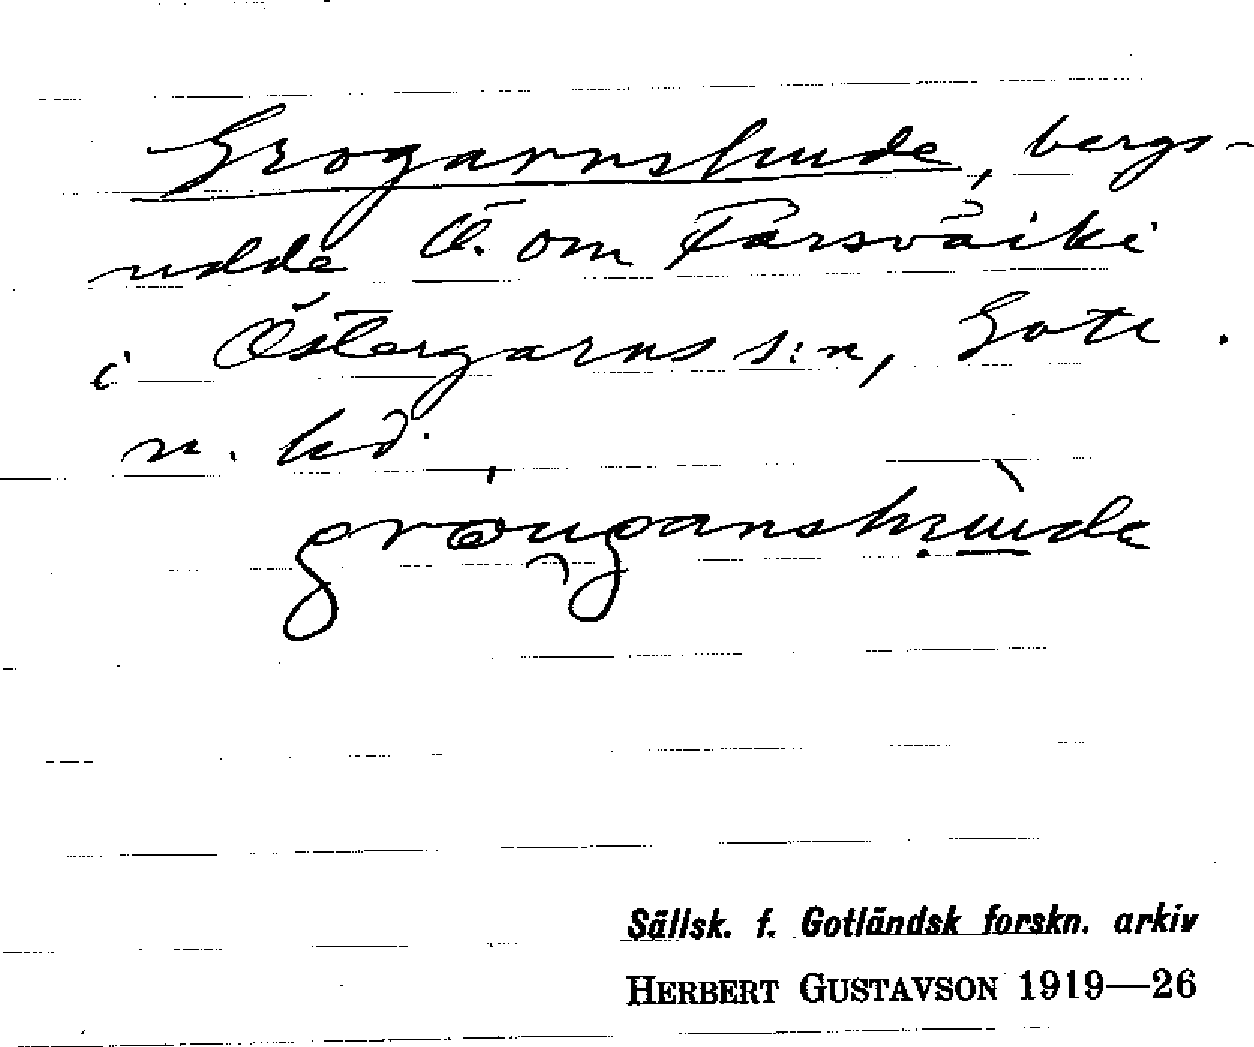 Grogarnshude, bergs-
udde Ö. om Farsväike
i Östergarns s:n, Gotl.
n. hd.
gröuganshude
Sällsk. f. Gotländsk forskn. arkiv
HERBERT GUSTAVSON 1919—26